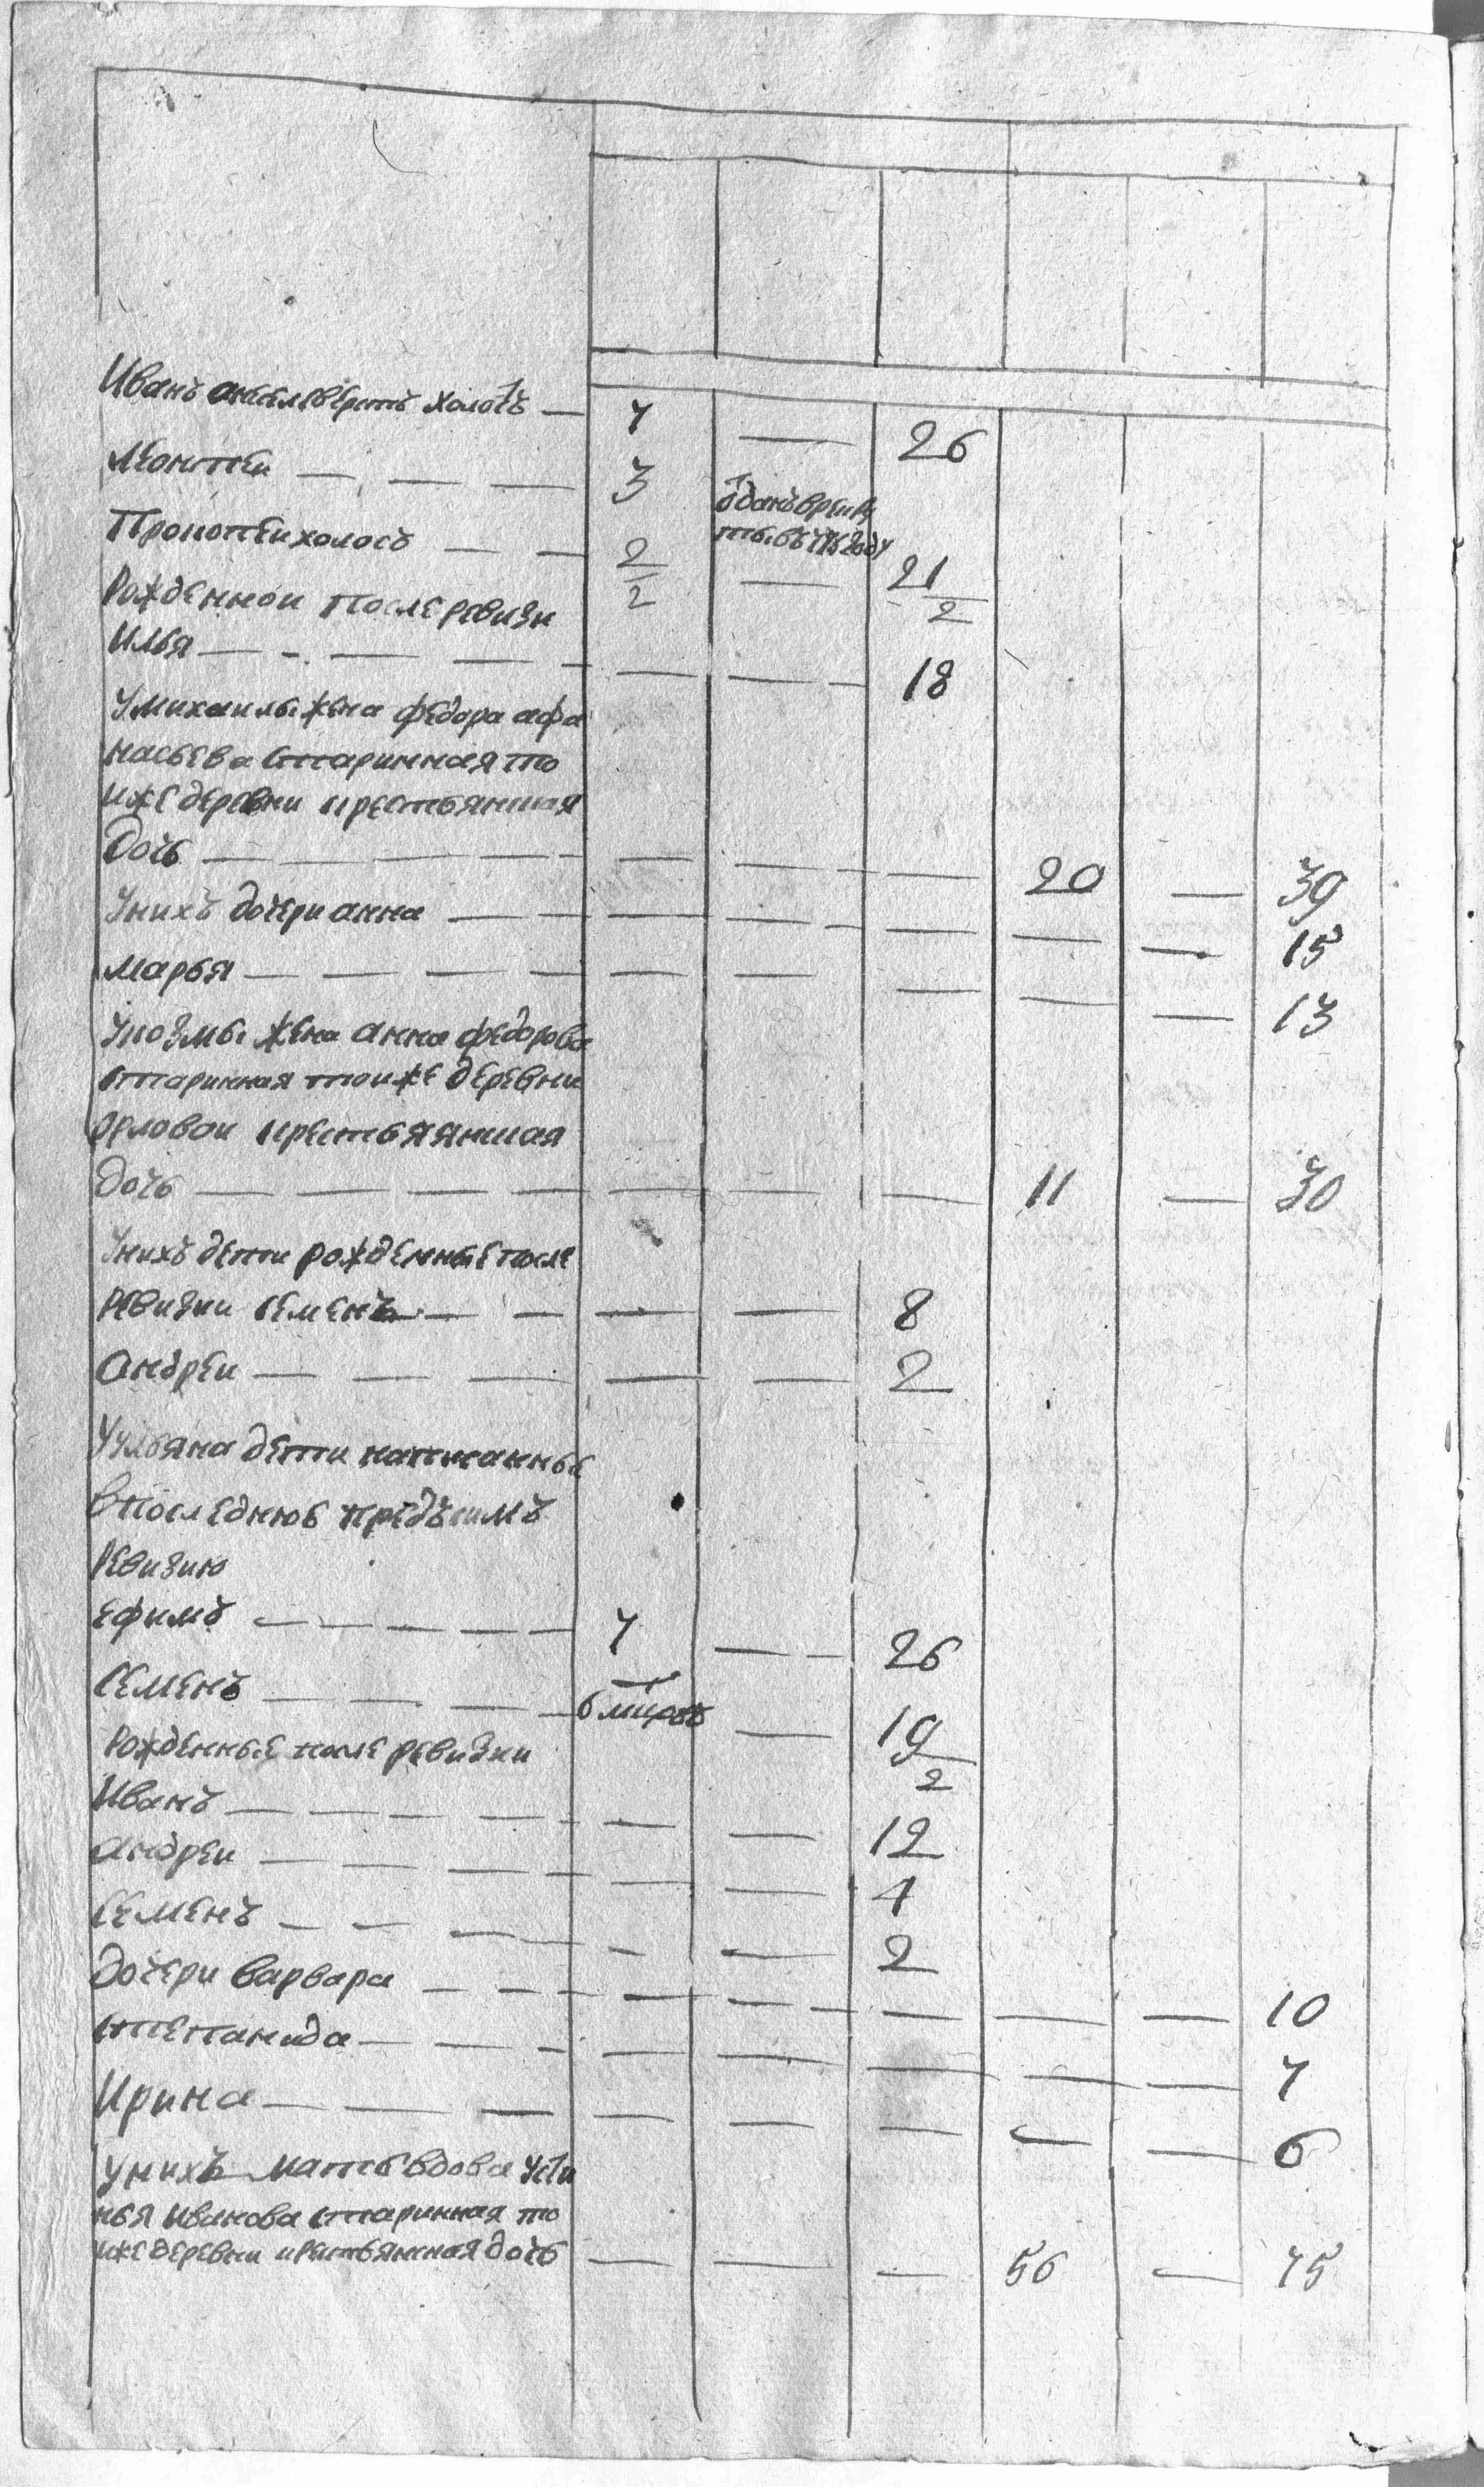 Иванъ холостъ — 7 — 26
Леонтеи — — — 3 отданъ врекру
ты въ году
Прокопеи холостъ — — 2/2 — 21/2
Рожденнои после ревизи
Илья — — — — — — — 18
У михаилы жена федора афа
насьева старинная то
иже деревни крестьянская
дочь — — — — — — — 20 — 39
У нихъ дочери анна — — — — — — — — 15
марья — — — — — — — — — 13
У козмы жена анна федорова
старинная тоиже деревни
орловои крестьяянская
дочь — — — — — — — 11 — 30
У нихъ дети рожденные после
ревизии семенъ — — — — 8
андреи — — — — — 2
У ульяна дети написанные
в последнюю предъ симъ
ревизию
ефимъ — — — — — 7 — — 26
Семенъ — — — — 6 мцовъ — 19/2
Рожденные после ревизии
Иванъ — — — — — — 12
андреи — — — — — 4
Семенъ — — — — — 2
дочери варвара — — — — — — — — — 10
степанида — — — — — — — — 7
Ирина — — — — — — — — 6
у нихъ мать вдова усти
нья иванова старинная то
иже деревни крестьянская дочь — — — 56 — 75